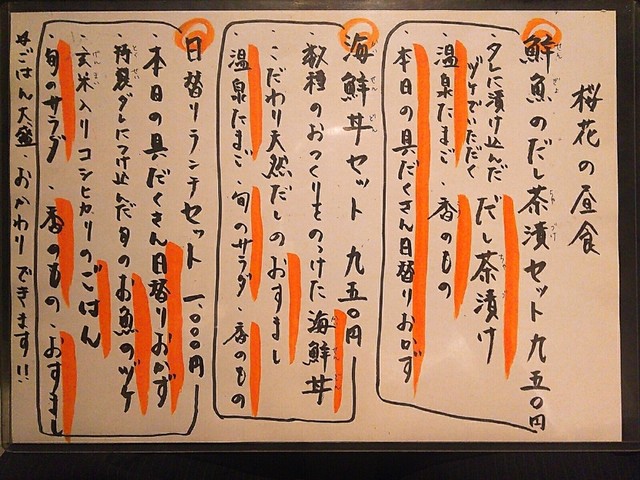 桜花の昼食
鮮魚のだし茶漬セット 九五〇円
タレに漬け込んだ だし茶漬け
ヅケでいただく
温泉たまご ・香のもの
・本日の具だくさん日替りおかず
海鮮丼セット 九五〇円
数種のおつくりをのっけた海鮮丼
・こだわり天然だしのおすまし
温泉たまご・旬のサラダ・香のもの
日替りランチセット 一、〇〇〇円
・本日の具だくさん日替りおかず
・特製ダレにつけ込んだ旬のお魚のヅケ
・玄米入りコシヒカリのごはん
・旬のサラダ ・香のもの・おすまし
※ごはん大盛、おかわりできます!!